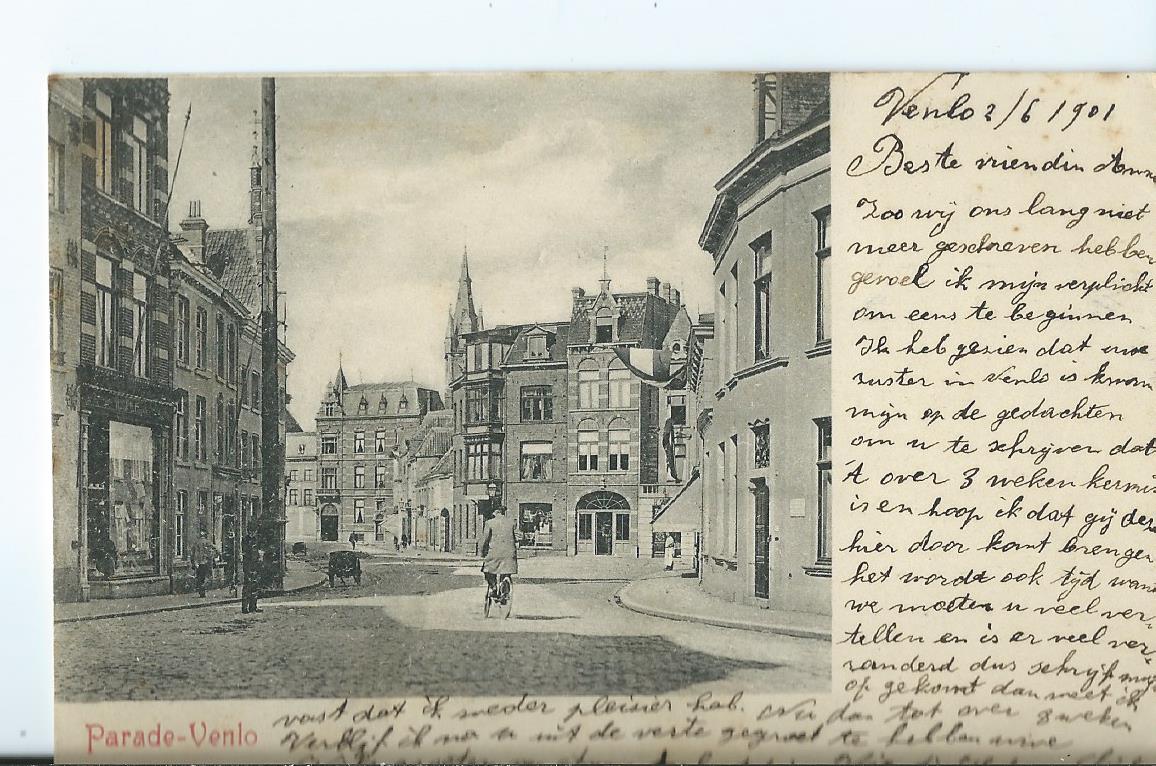 Venlo 2/6 1901
Beste vriendin Anna
Zoo wij ons lang niet
meer geschreven hebben
gevoel ik mijn verplicht
om eens te beginnen
Ik heb gezien dat uwe
zuster in Venlo is kwam
mijn op de gedachten
om u te schrijven dat
't over 3 weken kermis
is en hoop ik dat gij deze
hier door komt brengen
het wordt ook tijd want
we moeten u veel ver-
tellen en is er veel ver-
randerd dus schrijf mij
op gekomt dan weet ik
vast dat ik weder pleisier hab. Nu dan tot over 3 weken
Verblijf ik na u uit de verte gegroet te hebben uwe
Parade-Venlo